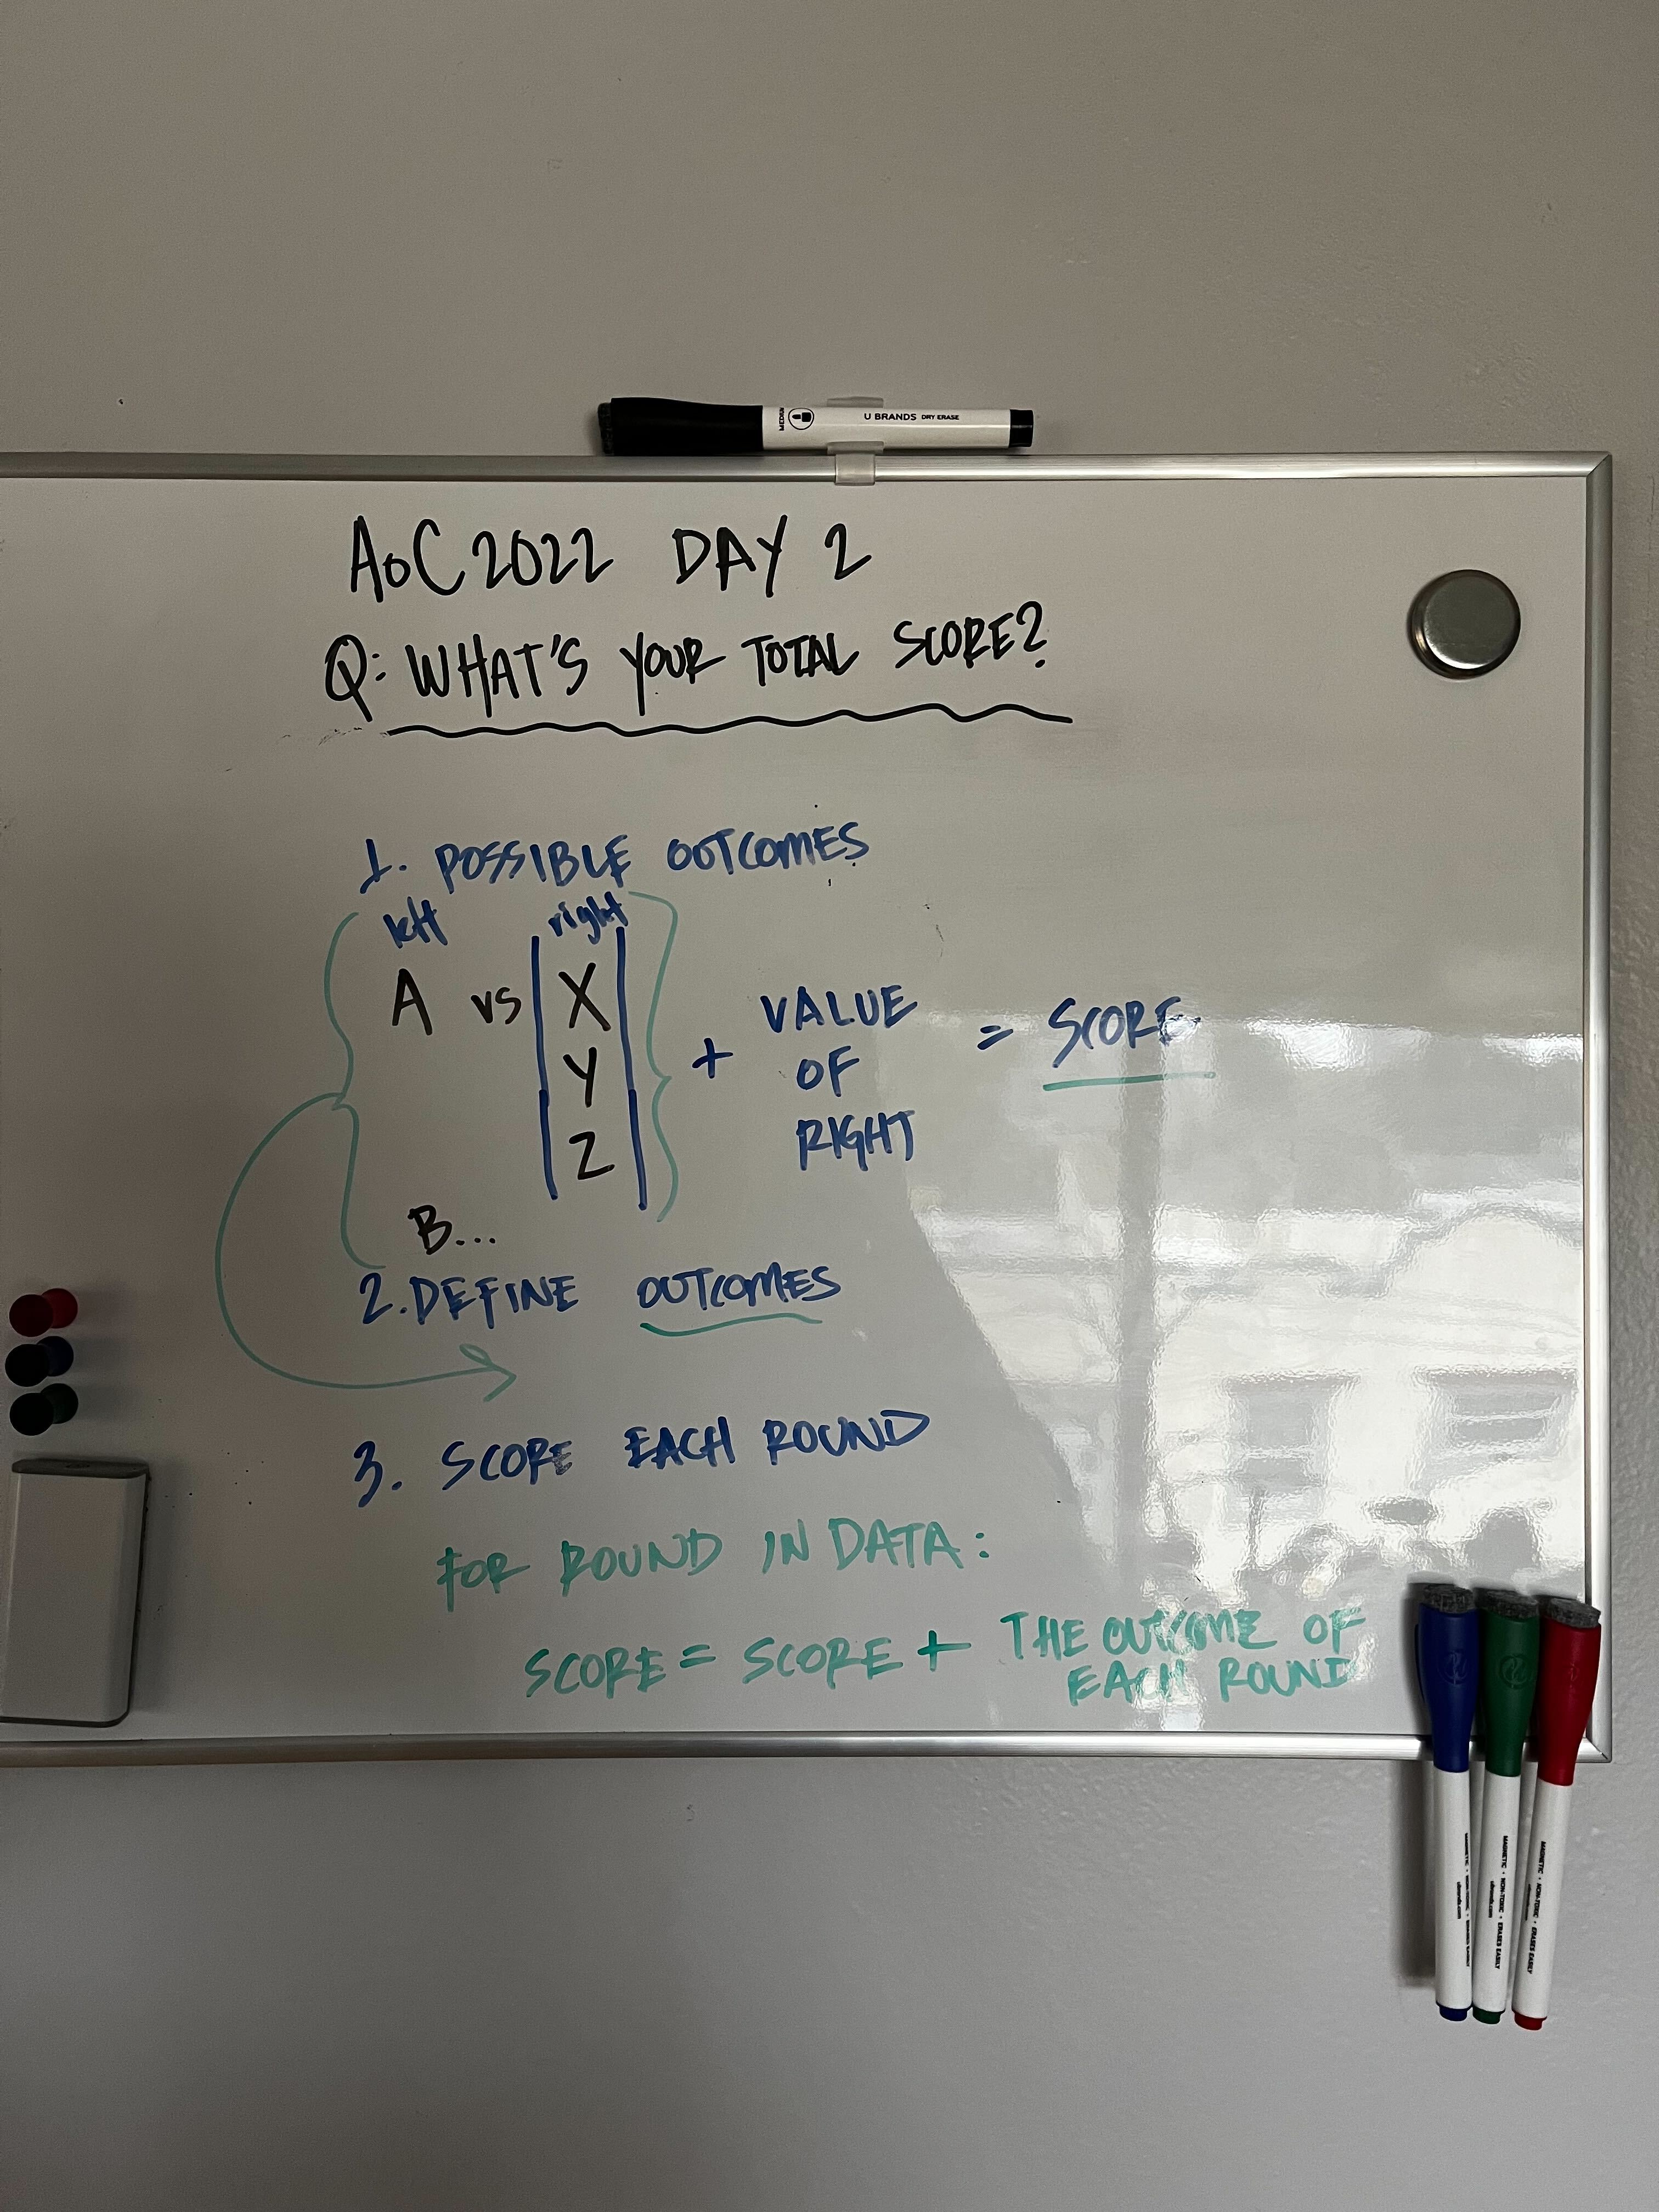 U BRANDS DRY ERASE
AoC 2022 DAY 2
Q: WHAT'S YOUR TOTAL SCORE?
1. POSSIBLE OUTCOMES
left right
A vs X + VALUE OF RIGHT = SCORE
Y
Z
B...
2. DEFINE OUTCOMES
3. SCORE EACH ROUND
FOR ROUND IN DATA:
SCORE = SCORE + THE OUTCOME OF
EACH ROUND
MAGNETIC • NON-TOXIC • ERASES EASILY
ubrands.com
MAGNETIC • NON-TOXIC • ERASES EASILY
ubrands.com
MAGNETIC • NON-TOXIC • ERASES EASILY